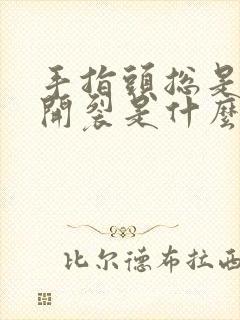 手指頭總是
開裂是什麼
比尔德布拉西